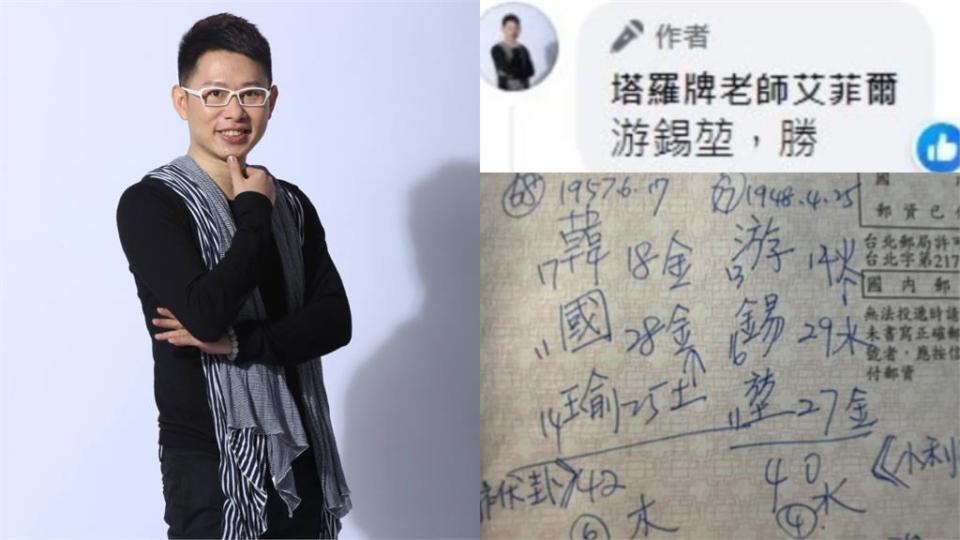 作者
塔羅牌老師艾菲爾
游錫堃，勝
68 1957.6.17
1948.4.25
韓 18金
17
國 28金
11
瑜 25土
14
42
⑥ 木
游 14火
13
錫 29水
16
堃 27金
11
40
④水
國
郵資已
台北郵局許可
台北字第217
國內郵
無法投遞時請
未書寫正確郵
號者，應按信
付郵資